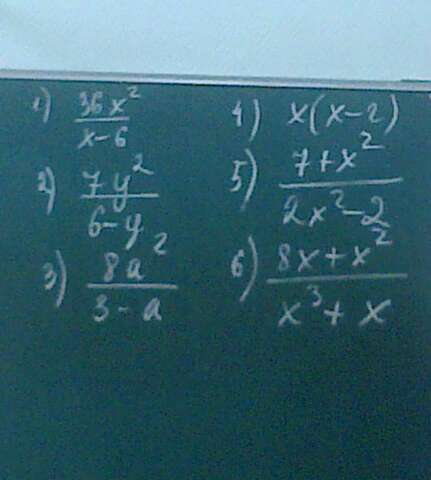 1) 36x²/(x-6)
2) 7y²/(6-y)
3) 8a²/(3-a)
4) x(x-2)
5) (7+x²)/(2x²-2)
6) (8x+x²)/(x³+x)